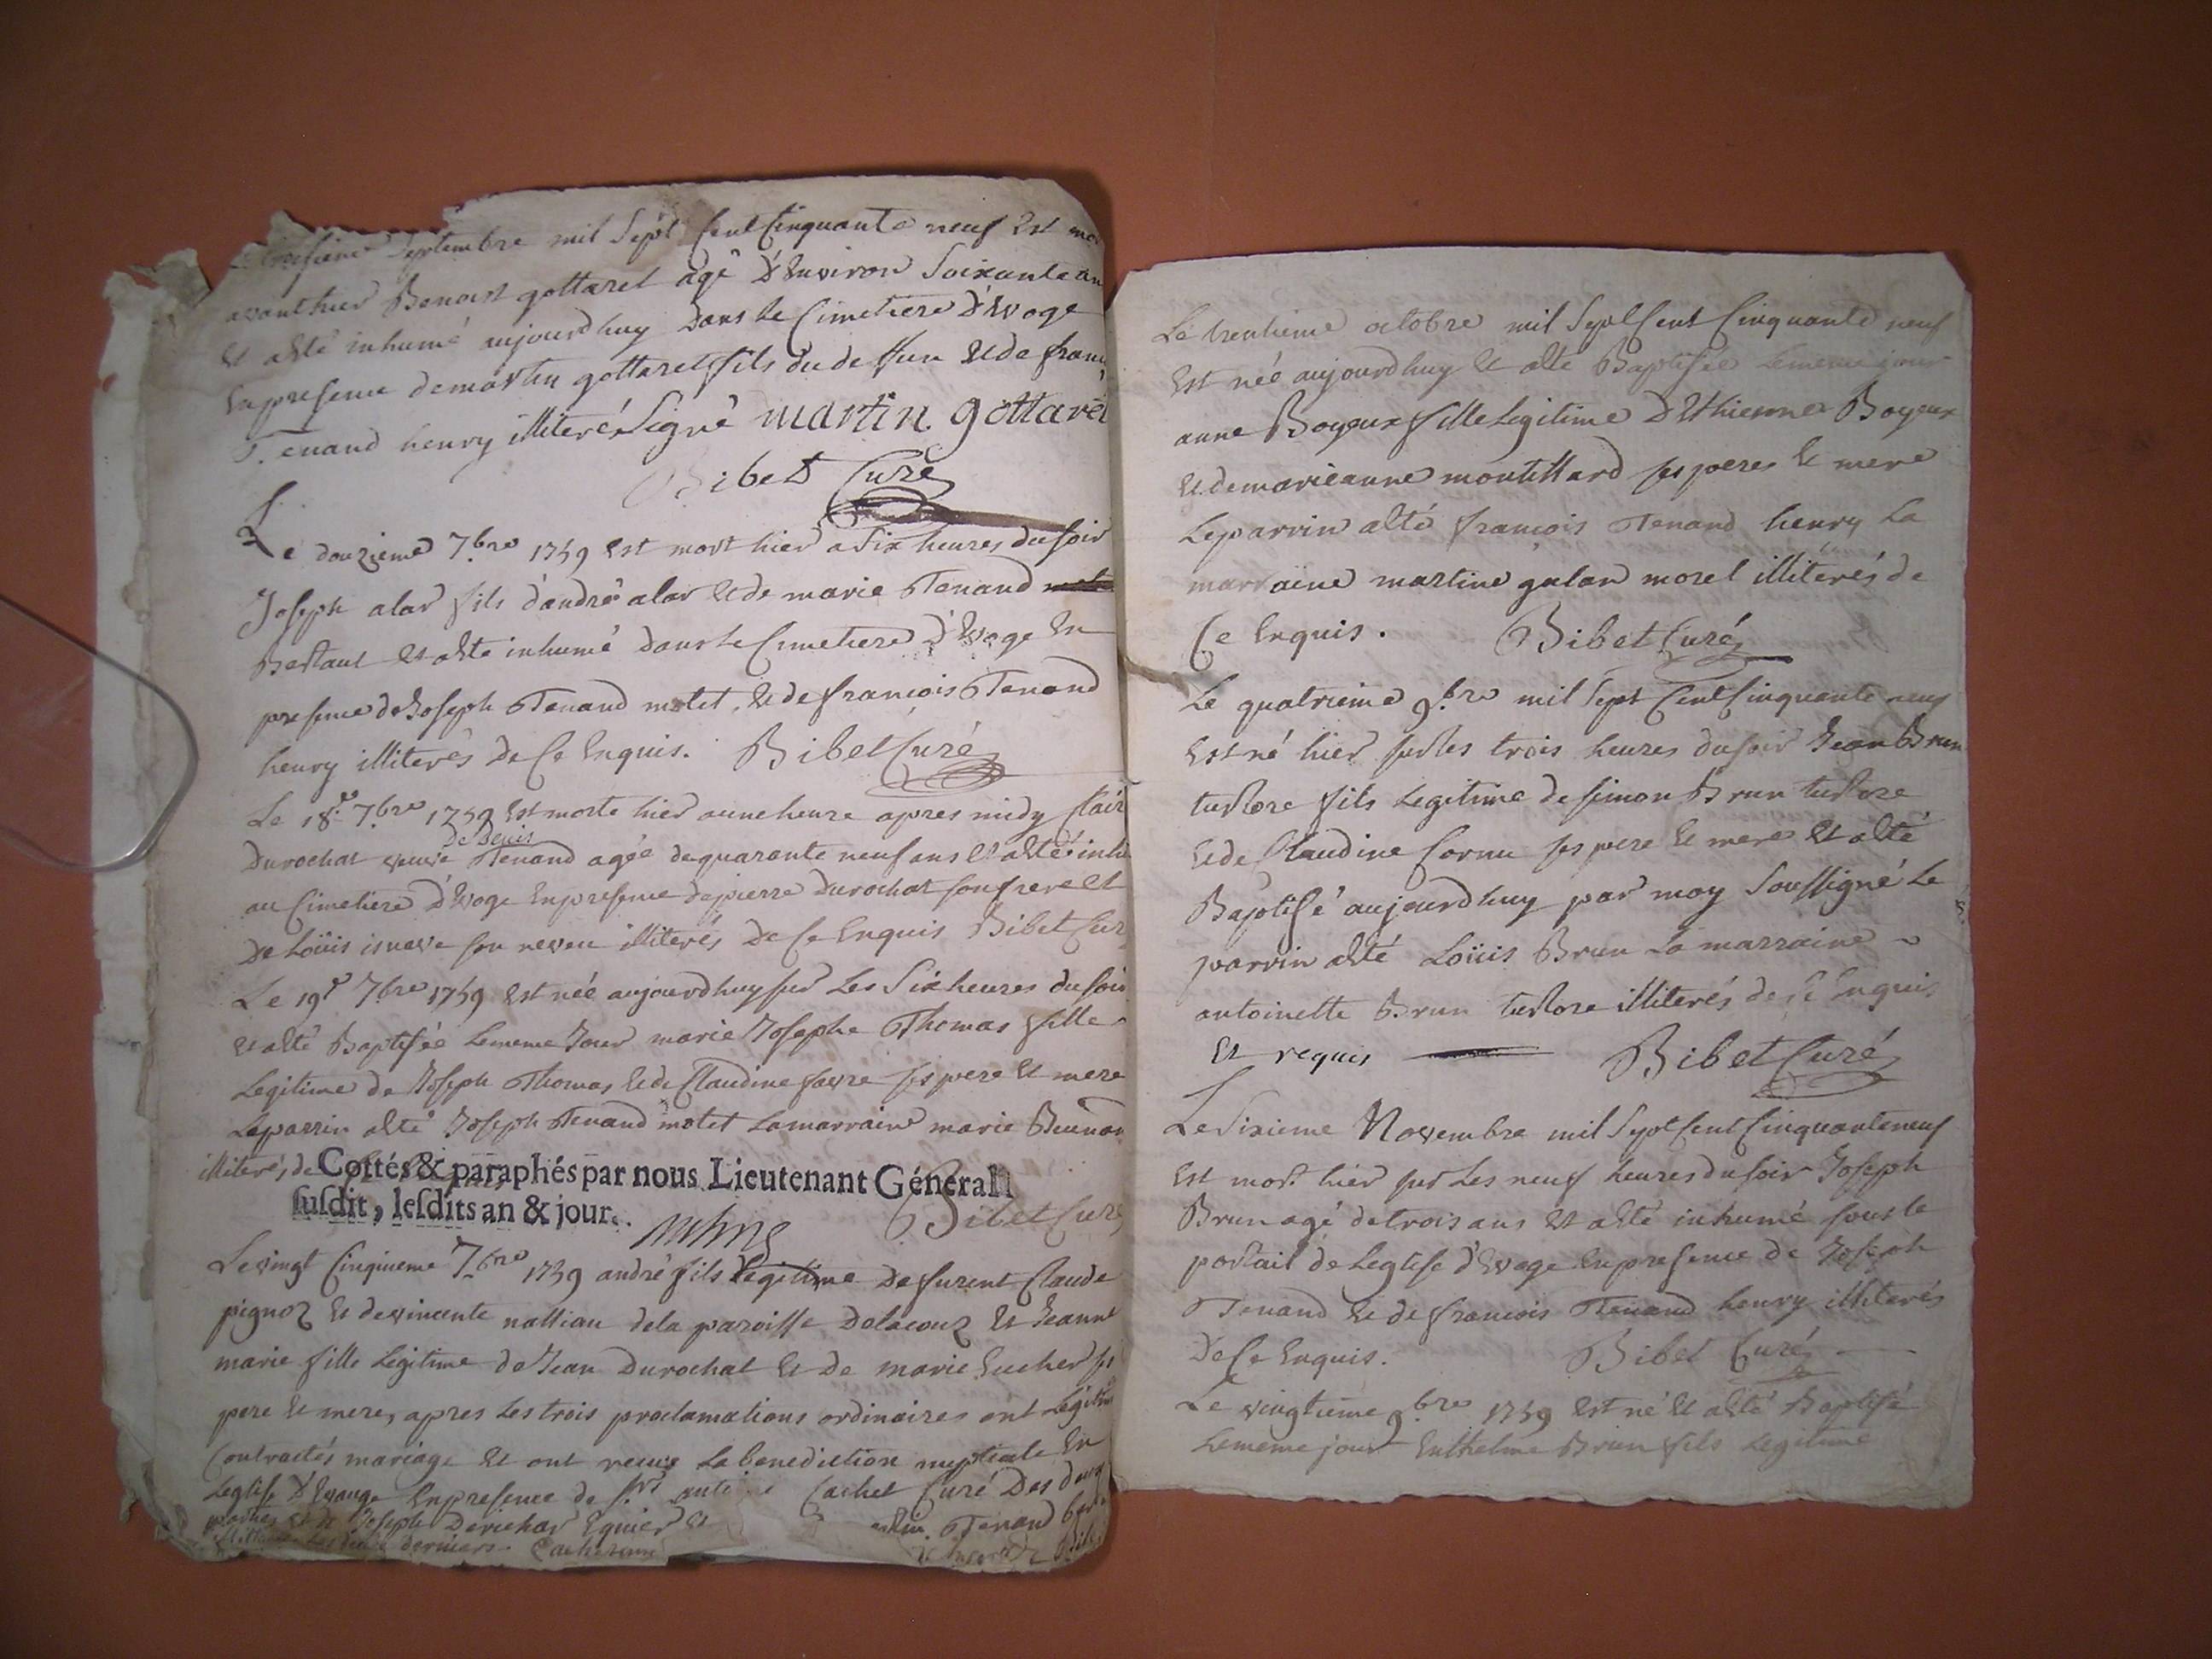 septembre mil sept cent cinquante neuf est
avant hier Benoist gottaret agé d'environ soixante an
et a été inhumé aujourdhuy dans le cimetiere d'evoge
en presence de martin gottaret fils du defun et de franç
Tenand henry illiterés signé martin gottaret
Bibet Curé
Le douzieme 7.bre 1759 est mort hier a six heures du soir
Joseph alar fils d'andré alar et de marie Tenand
et a été inhumé dans le cimetiere d'evoge en
presence de Joseph Tenand motet et de françois Tenand
henry illiterés de ce enquis. Bibet Curé
Le 18.e 7.bre 1759 est morte hier a une heure apres midy Clair
de Denis
Durochat veuve Tenand agée de quarante neuf ans et a été inhu
au cimetiere d'evoge en presence de pierre Durochat son frere et
de Loüis son neveu illiterés de ce enquis Bibet Cur
Le 19.e 7.bre 1759 est née aujourdhuy sur les six heures du soir
et a été Baptisée le meme jour marie Josephe Thomas fille
Legitime de Joseph Thomas et de Claudine favre ses pere et mere
Le parrin a été Joseph Tenand motet la marraine marie
illiterés de
Cottés & paraphés par nous Lieutenant Général
susdit, lesdits an & jour.
Bibet Curé
Le vingt cinquieme 7.bre 1759 andré fils legitime de furent Claude
pignoz et de vincente nallian de la paroisse de lacouz et Jeanne
marie fille legitime de Jean Durochat et de marie Eucher ses
pere et mere, apres les trois proclamations ordinaires ont legitim
contractés mariage et ont recue la benediction nuptiale en
Leglise d'Evouge en presence de Cachet Curé des
et de Joseph Tenand
derniers
Le trentieme octobre mil sept cent cinquante neuf
est née aujourdhuy et a été Baptisée le meme jour
anne Boyeux fille legitime d'Ethienne Boyeux
et de marieanne montillard ses peres et mere
Le parrin a été françois Tenand henry La
marraine martine galan morel illiterés de
Ce enquis. Bibet Curé
Le quatrieme 9.bre mil sept cent cinquante neuf
est né hier sur les trois heures du soir Jean Brun
tustore fils legitime de simon Brun tustore
et de Claudine Cornu ses pere et mere et a été
Baptisé aujourdhuy par moy soussigné Le
parrin a été Loüis Brun La marraine
antoinette Brun tustore illiterés de ce enquis
et requis Bibet Curé
Le sixieme Novembre mil sept cent cinquante neuf
est mort hier sur les neuf heures du soir Joseph
Brun agé de trois ans et a été inhumé sous le
portail de Leglise d'evoge en presence de Joseph
Tenand et de françois Tenand henry illiterés
de Ce enquis. Bibet Curé
Le vingtieme 9.bre 1759 est né et a été Baptisé
Le meme jour Enthelme Brun fils legitime